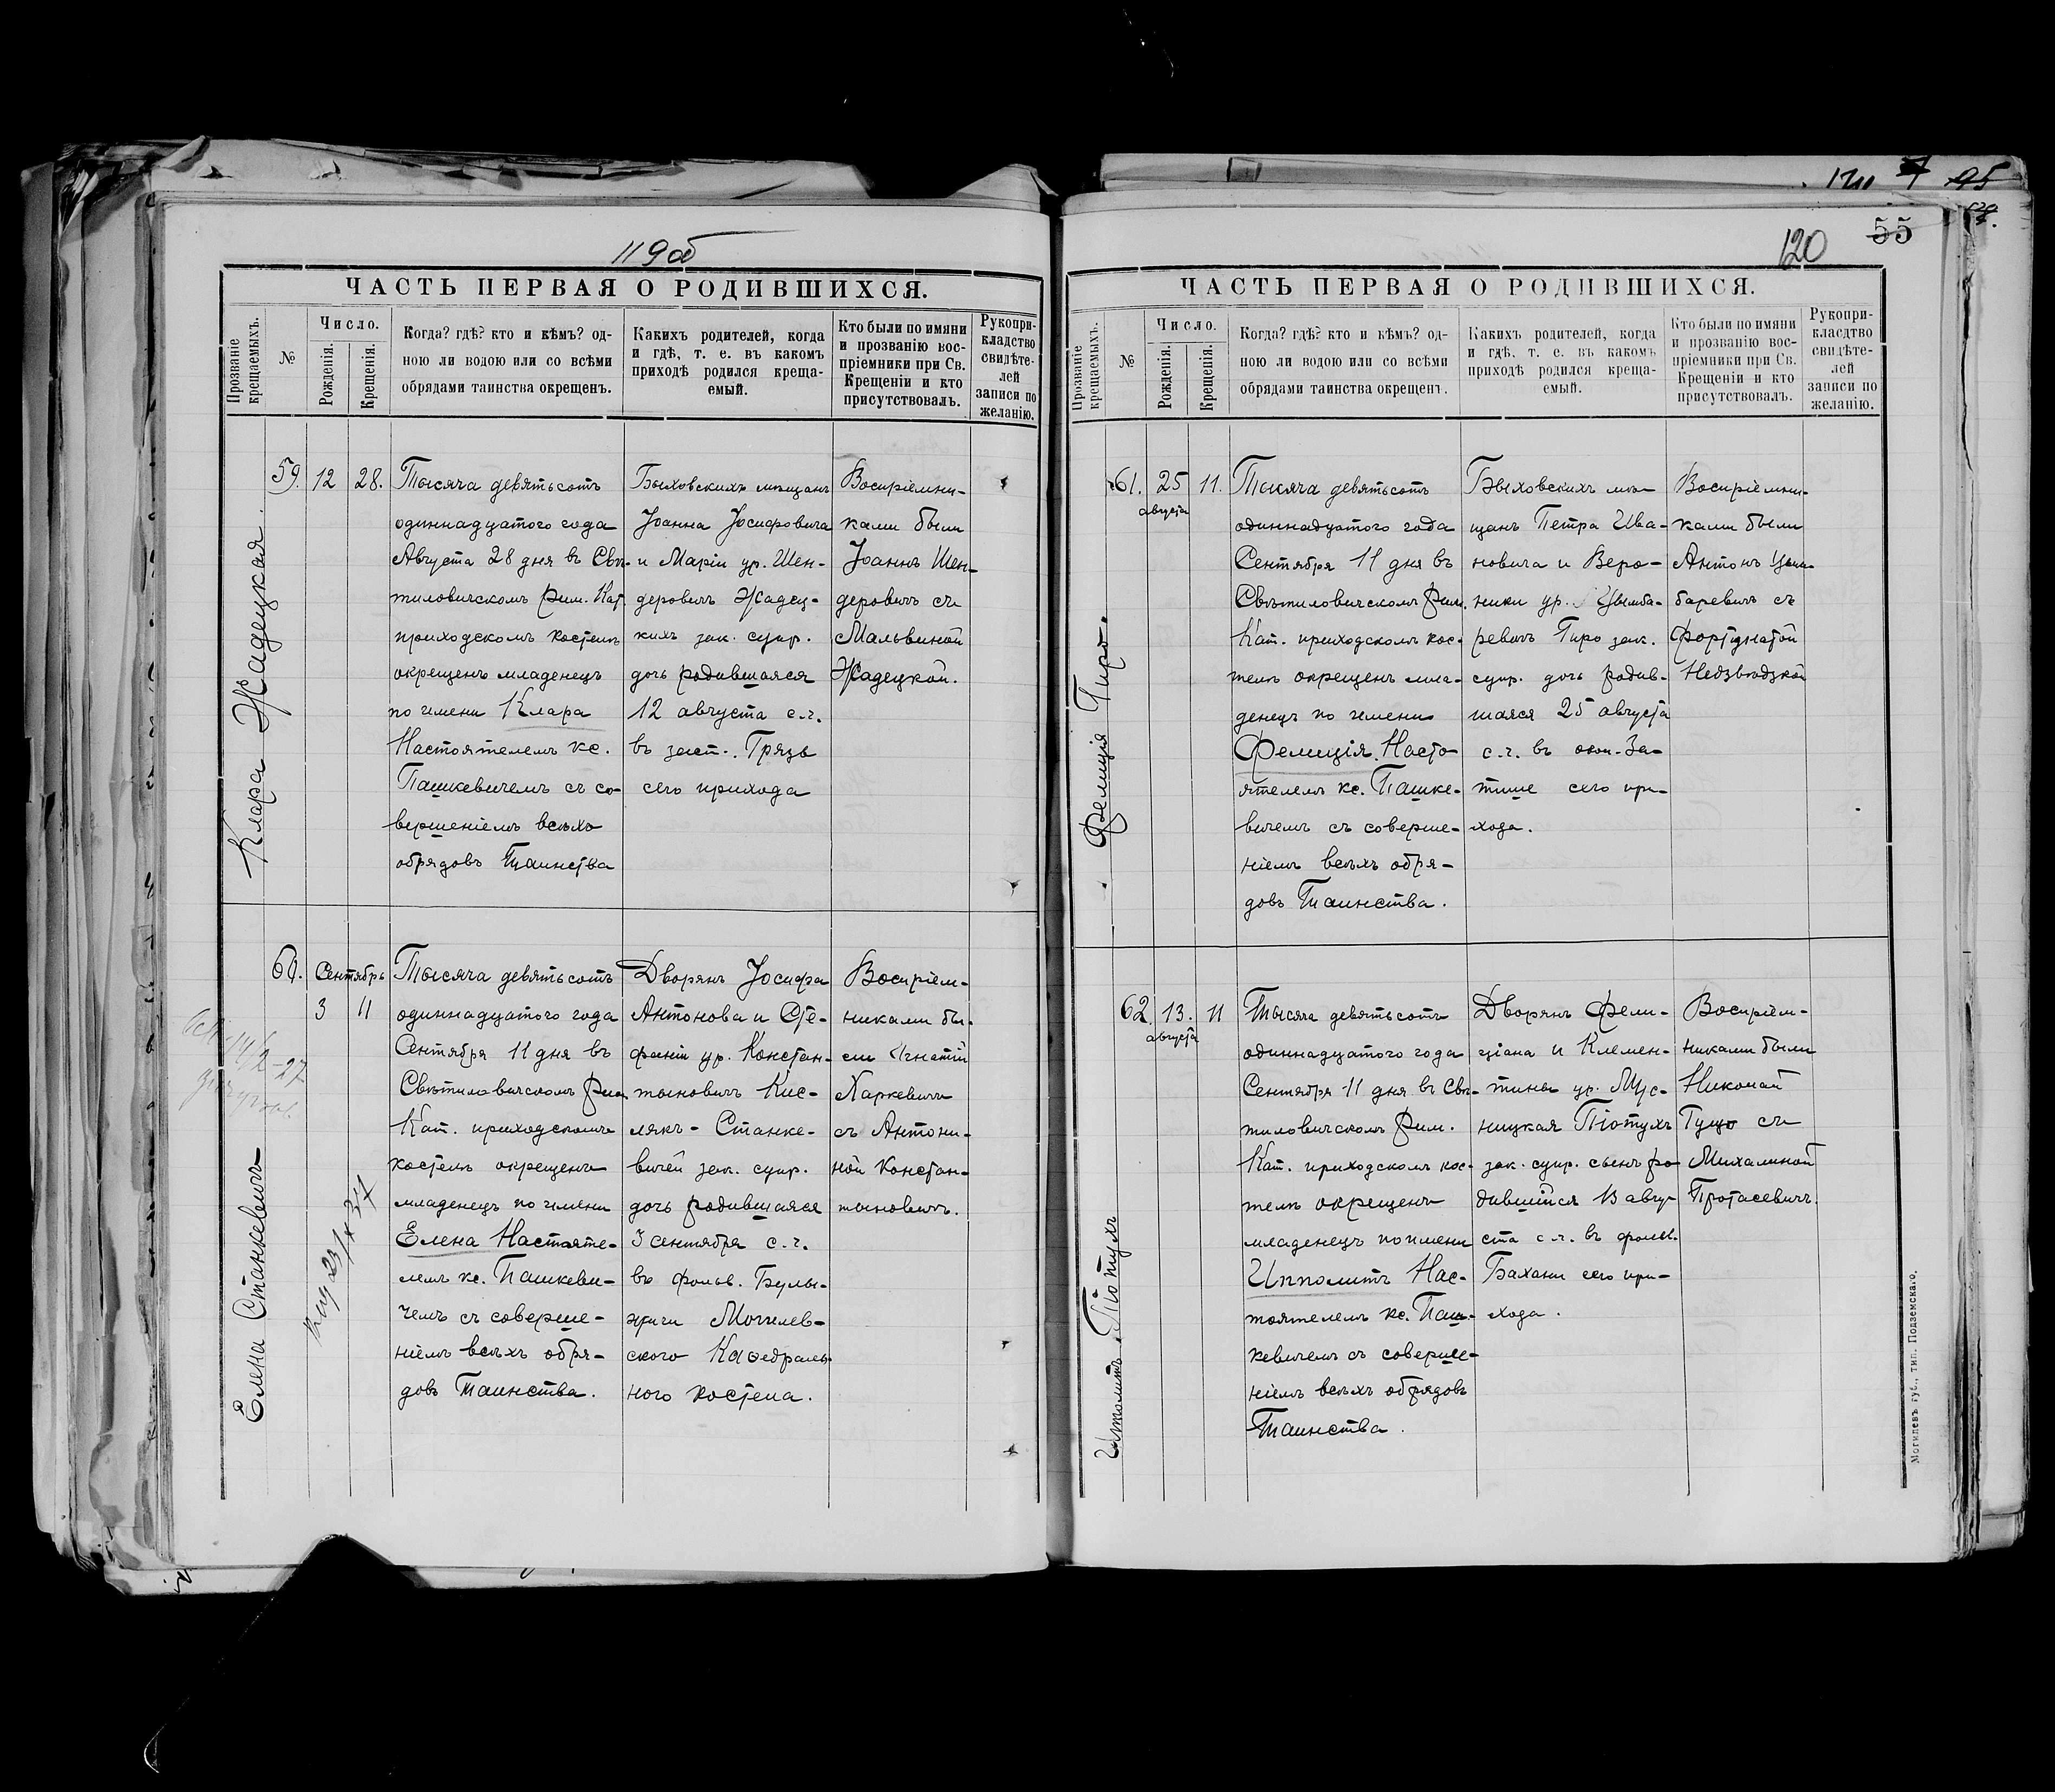 119об
ЧАСТЬ ПЕРВАЯ О РОДИВШИХСЯ.
Прозваніе крещаемыхъ.
№
Число.
Рожденія.
Крещенія.
Когда? гдѣ? кто и кѣмъ? од-
ною ли водою или со всѣми
обрядами таинства окрещенъ.
Какихъ родителей, когда
и гдѣ, т. е. въ какомъ
приходѣ родился креща-
емый.
Кто были по имяни
и прозванію вос-
пріемники при Св.
Крещеніи и кто
присутствовалъ.
Рукопри-
кладство
свидѣте-
лей
записи по
желанію.
Клара Жадецкая.
59. 12 28.
Тысяча девятьсотъ
одиннадцатого года
Августа 28 дня въ Свѣ-
тиловичскомъ Рим. Кат.
приходскомъ костелѣ
окрещенъ младенецъ
по имени Клара
Настоятелемъ кс.
Пашкевичемъ съ со-
вершеніемъ всѣхъ
обрядовъ Таинства
Быховскихъ мѣщанъ
Іоанна Іосифовича
и Маріи ур. Шен-
деровичъ Жадец-
кихъ зак. супр.
дочь родившаяся
12 августа с.г.
въ заст. Грязь
сего прихода
Воспріемни-
ками были
Іоаннъ Шен-
деровичъ съ
Мальвиной
Жадецкой.
Елена Станкевичъ
60. Сентябрь
3 11
Тысяча девятьсотъ
одиннадцатого года
Сентября 11 дня въ
Свѣтиловичскомъ Рим
Кат. приходскомъ
костелѣ окрещенъ
младенецъ по имени
Елена Настояте-
лемъ кс. Пашкеви-
чемъ съ соверше-
ніемъ всѣхъ обря-
довъ Таинства.
Дворянъ Іосифа
Антонова и Сте-
фаніи ур. Констан-
тыновичъ Кис-
лякъ-Станке-
вичей зак. супр.
дочь родившаяся
3 сентября с.г.
въ фольв. Булы-
жичи Могилев-
ского Каѳедраль-
ного костела.
Воспріем-
никами бы-
ли Игнатій
Харкевичъ
съ Антони-
ной Констан-
тыновичъ.
120
55
ЧАСТЬ ПЕРВАЯ О РОДИВШИХСЯ.
Прозваніе крещаемыхъ.
№
Число.
Рожденія.
Крещенія.
Когда? гдѣ? кто и кѣмъ? од-
ною ли водою или со всѣми
обрядами таинства окрещенъ.
Какихъ родителей, когда
и гдѣ, т. е. въ какомъ
приходѣ родился креща-
емый.
Кто были по имяни
и прозванію вос-
пріемники при Св.
Крещеніи и кто
присутствовалъ.
Рукопри-
класдтво
свидѣте-
лей
записи по
желанію.
Фелиція Пиро.
61. 25 11.
августа
Тысяча девятьсотъ
одиннадцатого года
Сентября 11 дня въ
Свѣтиловичскомъ Рим.
Кат. приходскомъ кос-
телѣ окрещенъ мла-
денецъ по имени
Фелиція Насто-
ятелемъ кс. Пашке-
вичемъ съ соверше-
ніемъ всѣхъ обря-
довъ Таинства.
Быховскихъ мѣ-
щанъ Петра Ива-
новича и Веро-
ники ур. Цымба-
ревичъ Пиро зак.
супр. дочь родив-
шаяся 25 августа
с.г. въ окол. За-
тише сего при-
хода.
Воспріемни-
ками были
Антонъ Цым-
баревичъ съ
Фортунатой
Недзьвѣдзкой
Ипполитъ Піотухъ
62. 13. 11
августа
Тысяча девятьсотъ
одиннадцатого года
Сентября 11 дня въ Свѣ-
тиловичскомъ Рим.
Кат. приходскомъ кос-
телѣ окрещенъ
младенецъ по имени
Ипполитъ Нас-
тоятелемъ кс. Паш-
кевичемъ съ соверше-
ніемъ всѣхъ обрядовъ
Таинства.
Дворянъ Фели-
ціана и Клемен-
тины ур. Мус-
ницкая Піотухъ
зак. супр. сынъ ро-
дившійся 13 авгу-
ста с.г. въ фольв.
Бахани сего при-
хода.
Воспріем-
никами были
Николай
Гуцо съ
Михалиной
Протасевичъ.
Могилевъ губ., тип. Подземскаго.